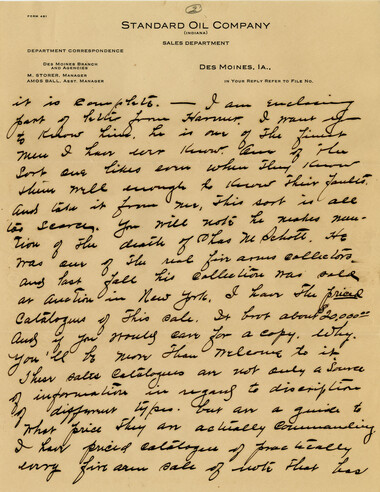 FORM 481
2
STANDARD OIL COMPANY
(INDIANA)
SALES DEPARTMENT
DEPARTMENT CORRESPONDENCE
DES MOINES BRANCH
AND AGENCIES
M. STORER, MANAGER
AMOS BALL, ASST. MANAGER
DES MOINES, IA.,
IN YOUR REPLY REFER TO FILE NO.
it is complete. — I am enclosing
part of letter from Harmer, I want you
to know him. he is one of the finest
men I have ever known. One of the
sort one likes even when they know
them well enough to know their faults.
And take it from me, this sort is all
too scarce. You will note he makes men-
tion of the death of Chas M. Schott. He
was one of the real fire arms collectors
and last fall his collection was sold
at auction in New York. I have the priced
catalogue of this sale. It brot about
And if you would care for a copy. Why.
You'll be more than welcome to it
These sales catalogues are not only a source
of information in regard to discription
of different types. but are a guide to
what price they are actually commanding
I have priced catalogue of practically
every fire arm sale of note that has